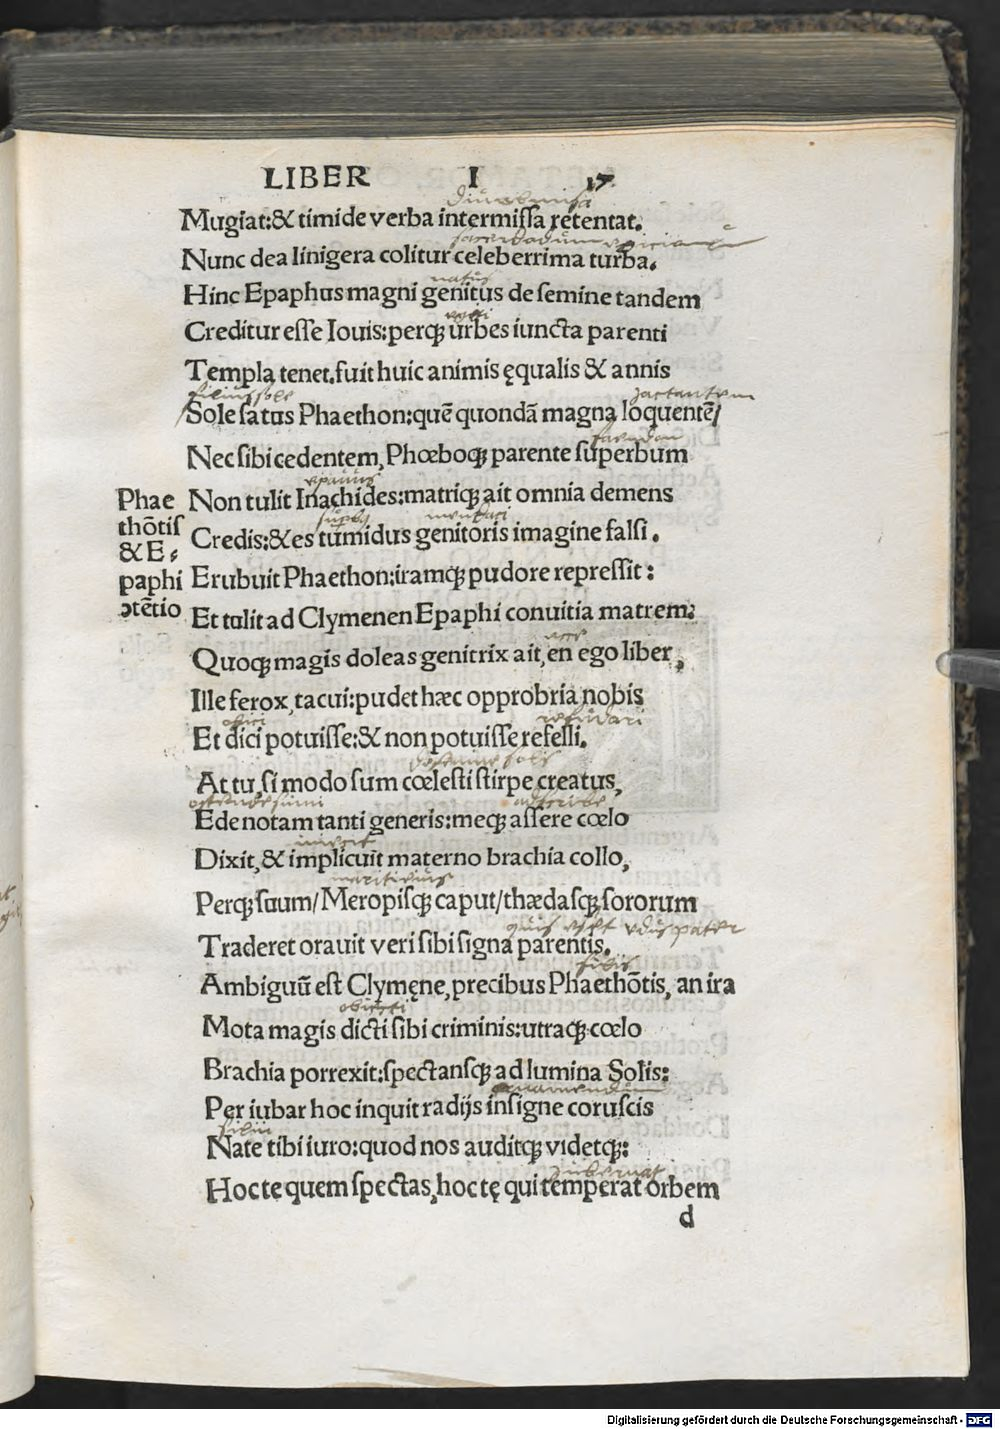 LIBER I 17
Mugiat:& timide verba intermiſſa retentat.
ſacerdotum
Nunc dea linigera colitur celeberrima turba.
natus
Hinc Epaphus magni genitus de ſemine tandem
Creditur eſſe Iouis:perqꝫ urbes iuncta parenti
Templa tenet.fuit huic animis ęqualis & annis
filius sole iactantem
Sole ſatus Phaethon:quē quondā magna loquentē/
Nec ſibi cedentem, Phœboqꝫ parente ſuperbum
Non tulit Inachides:matriqꝫ ait omnia demens
Credis:& es tumidus genitoris imagine falſi.
Erubuit Phaethon:iramqꝫ pudore repreſſit:
Et tulit ad Clymenen Epaphi conuitia matrem:
Phae
thōtiſ
& E-
paphi
ↄtētio
Quoqꝫ magis doleas genitrix ait, en ego liber,
Ille ferox, tacui:pudet hæc opprobria nobis
obiici
Et dici potuiſſe:& non potuiſſe refelli.
At tu, ſi modo ſum cœleſti ſtirpe creatus,
adſcribe
Ede notam tanti generis:meqꝫ aſſere cœlo
Dixit, & implicuit materno brachia collo,
Perqꝫ ſuum/Meropiſqꝫ caput/thædaſqꝫ ſororum
pater
Traderet orauit veri ſibi ſigna parentis.
filii
Ambiguū eſt Clymęne, precibus Phaethōtis, an ira
obiecti
Mota magis dicti ſibi criminis:utraqꝫ cœlo
Brachia porrexit:ſpectanſqꝫ ad lumina Solis:
Per iubar hoc inquit radijs inſigne coruſcis
filii
Nate tibi iuro:quod nos auditqꝫ videtqꝫ:
gubernat
Hoc te quem ſpectas, hoc tę qui temperat orbem
d
Digitalisierung gefördert durch die Deutsche Forschungsgemeinschaft - DFG